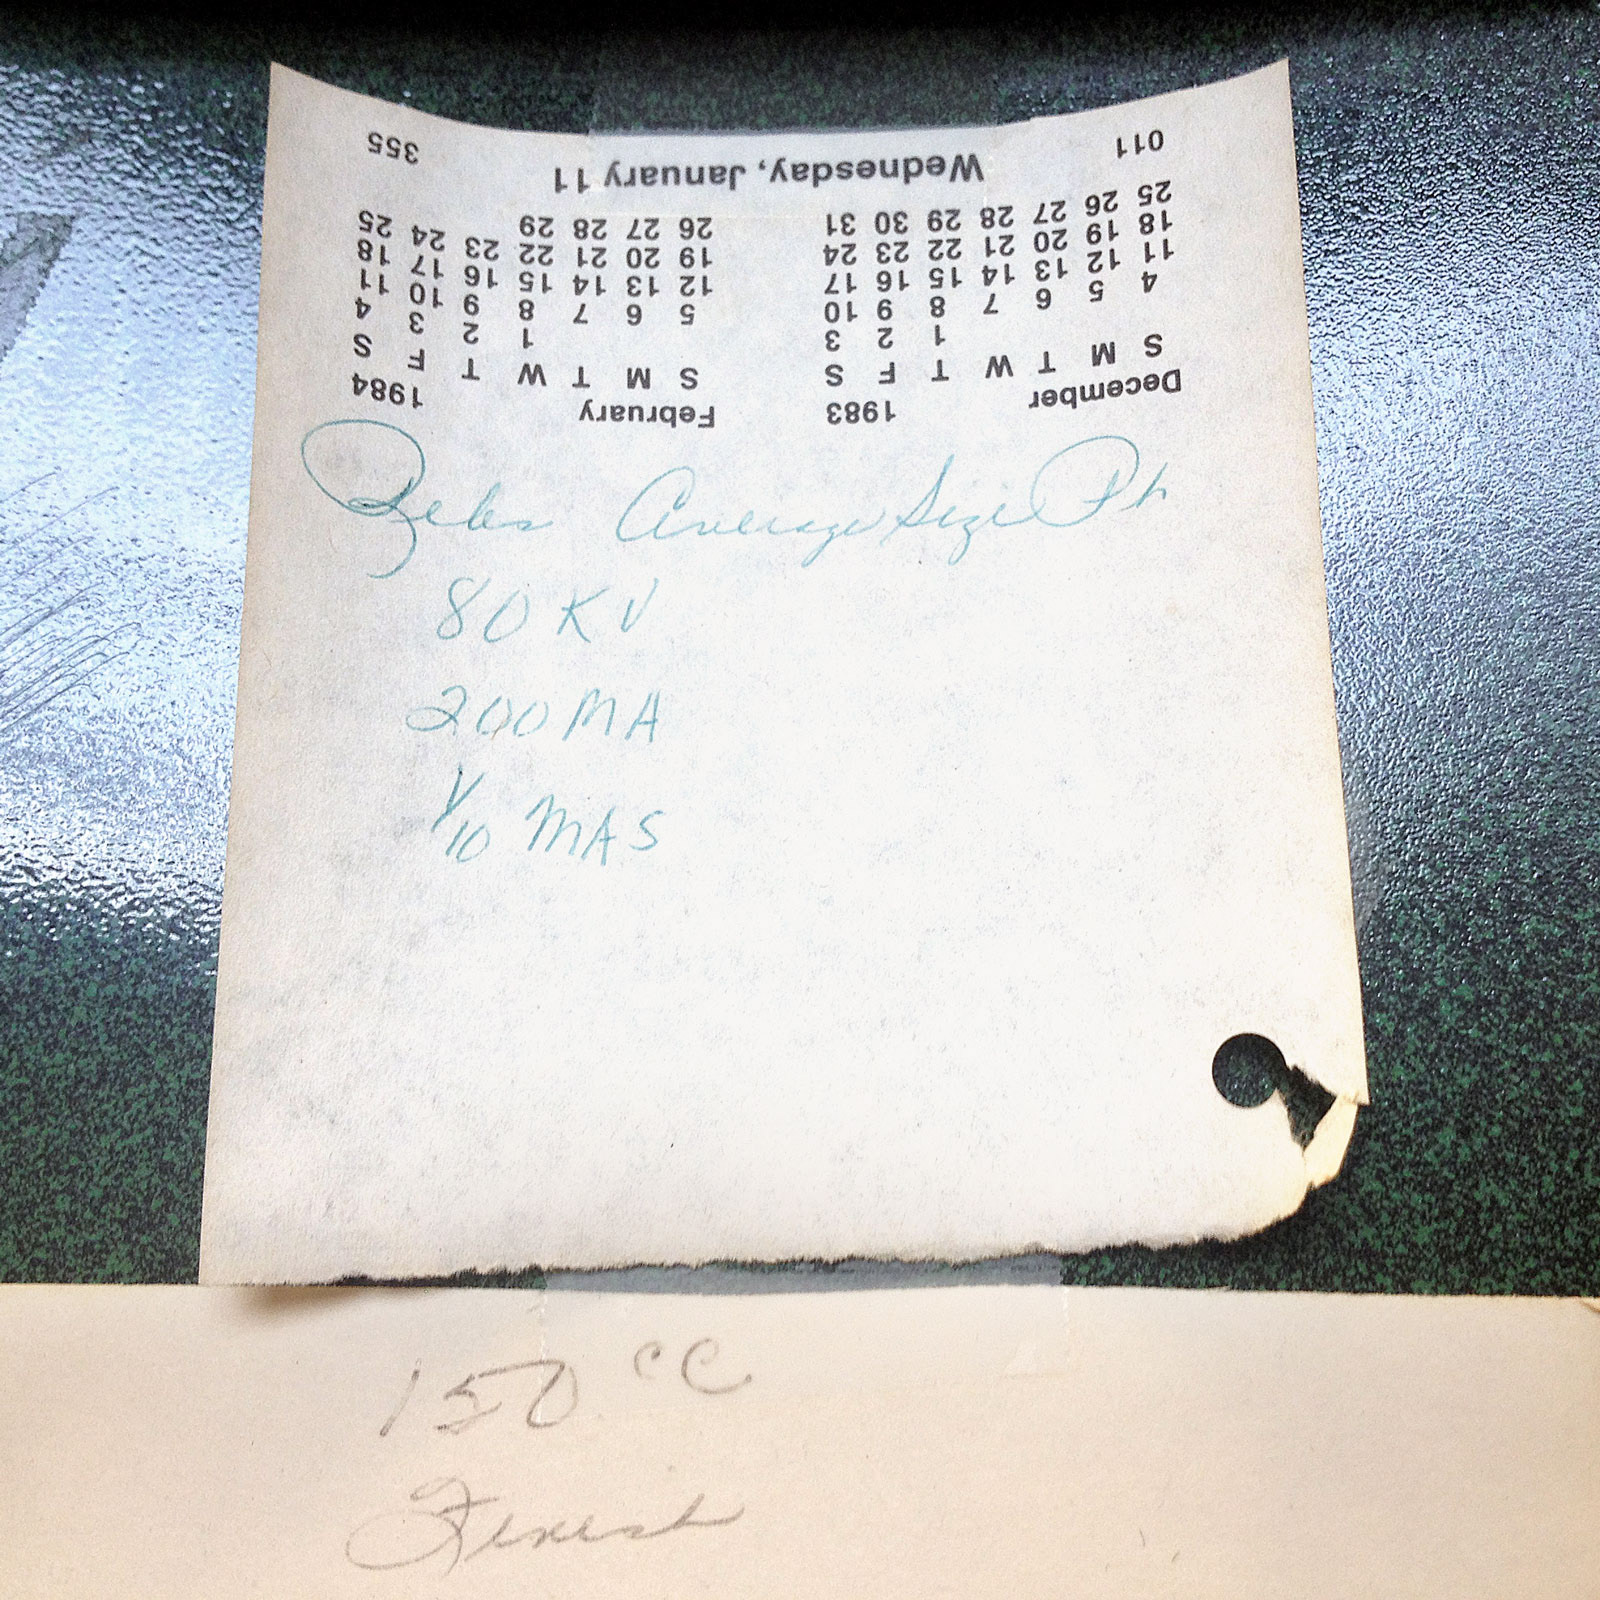 December 1983 February 1984
S M T W T F S S M T W T F S
1 2 3 1 2 3 4
4 5 6 7 8 9 10 5 6 7 8 9 10 11
11 12 13 14 15 16 17 12 13 14 15 16 17 18
18 19 20 21 22 23 24 19 20 21 22 23 24 25
25 26 27 28 29 30 31 26 27 28 29
011 Wednesday, January 11 355
Average Size Pt
80 KV
200 MA
1/10 MAS
150 cc
Finish